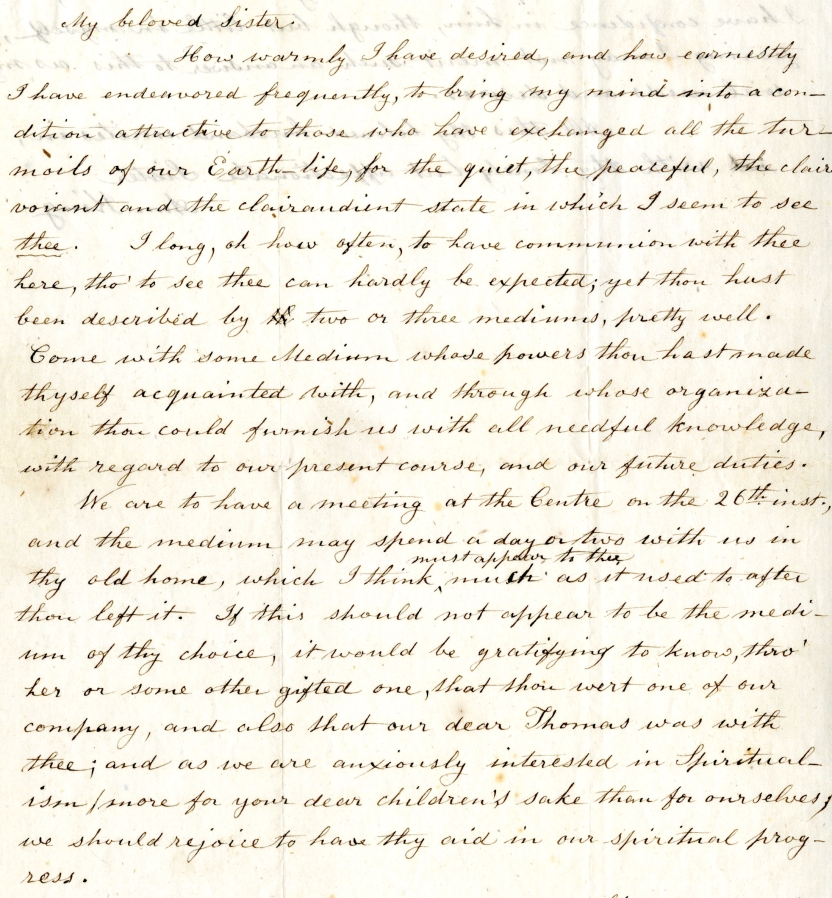 My beloved Sister.
How warmly I have desired, and how earnestly
I have endeavored frequently, to bring my mind into a con-
dition attractive to those who have exchanged all the tur-
moils of our Earth-life, for the quiet, the peaceful, the clair
voiant and the clairaudient state in which I seem to see
thee. I long, oh how often, to have communion with thee
here, tho' to see thee can hardly be expected; yet thou hast
been described by two or three mediums, pretty well.
Come with some Medium whose powers thou hast made
thyself acquainted with, and through whose organiza-
tion thou could furnish us with all needful knowledge,
with regard to our present course, and our future duties.
We are to have a meeting at the Centre on the 26th inst.,
and the medium may spend a day or two with us in
must appear to thee
thy old home, which I think, much as it used to after
thou left it. If this should not appear to be the medi-
um of thy choice, it would be gratifying to know, thro'
her or some other gifted one, that thou wert one of our
company, and also that our dear Thomas was with
thee; and as we are anxiously interested in Spiritual-
ism (more for your dear children's sake than for ourselves)
we should rejoice to have thy aid in our spiritual prog-
ress.